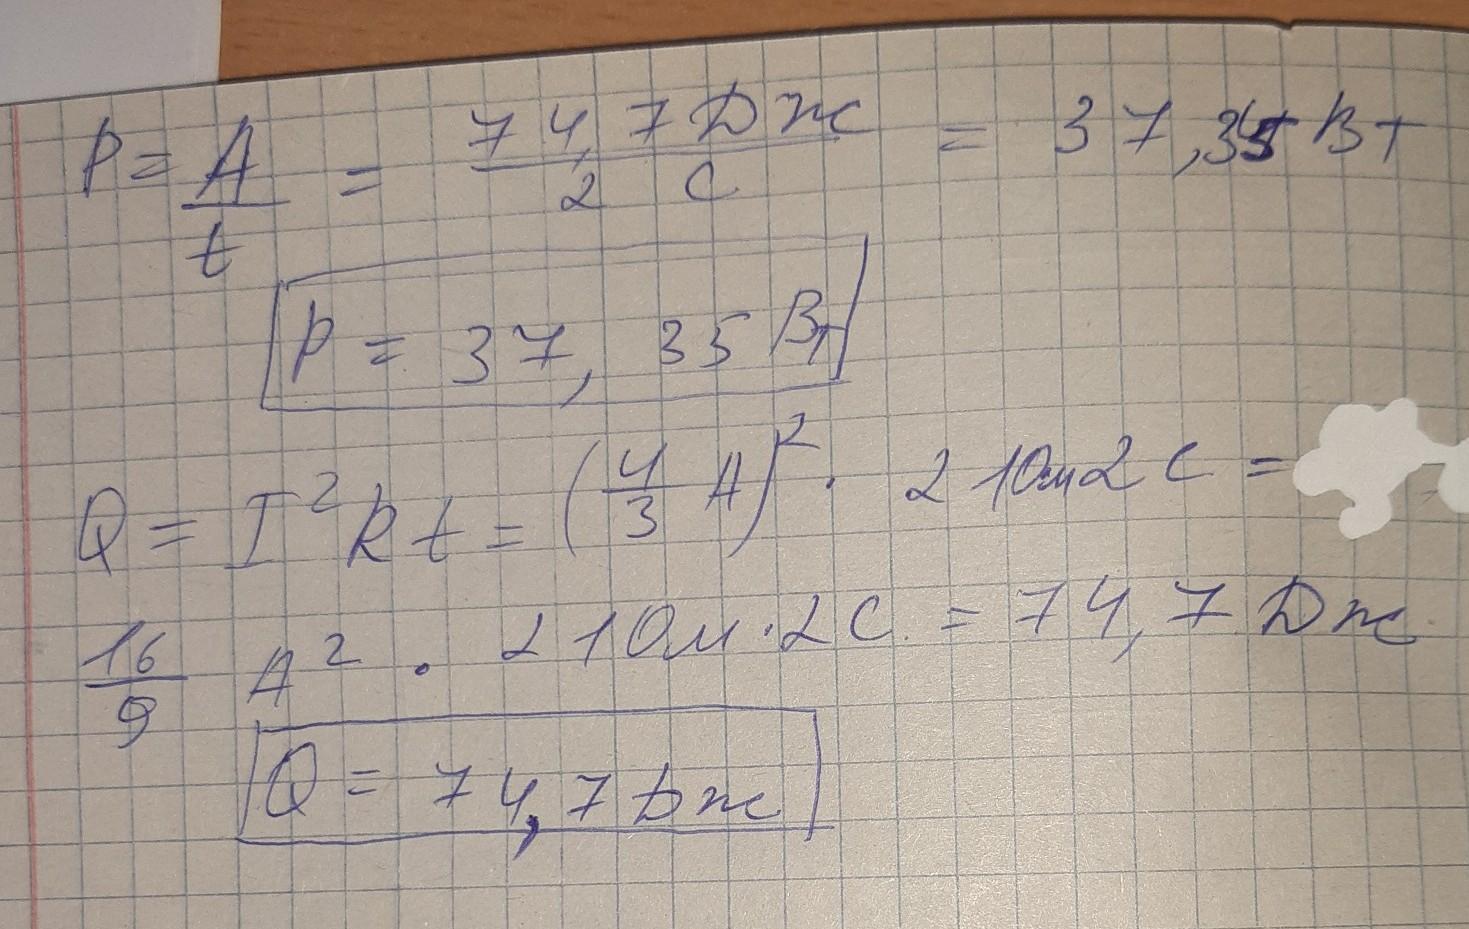 P = A/t = 74,7 Дж / 2 с = 37,35 Вт
P = 37, 35 Вт
Q = I² R t = (4/3 А)² · 21Ом2с =
16/9 А² · 21Ом · 2с = 74,7 Дж
Q = 74,7 Дж